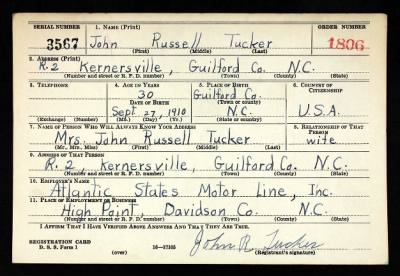 SERIAL NUMBER 1. NAME (Print) ORDER NUMBER
3567 John Russell Tucker 1806
(First) (Middle) (Last)
2. ADDRESS (Print)
R.2 Kernersville, Guilford Co. N.C.
(Number and street or R. F. D. number) (Town) (County) (State)
3. TELEPHONE 4. AGE IN YEARS 5. PLACE OF BIRTH 6. COUNTRY OF CITIZENSHIP
30 Guilford Co.
DATE OF BIRTH (Town or county)
Sept. 27, 1910 N.C. U.S.A.
(Exchange) (Number) (Mo.) (Day) (Yr.) (State or country)
7. NAME OF PERSON WHO WILL ALWAYS KNOW YOUR ADDRESS 8. RELATIONSHIP OF THAT PERSON
Mrs. John Russell Tucker wife
(Mr., Mrs., Miss) (First) (Middle) (Last)
9. ADDRESS OF THAT PERSON
R.2, Kernersville, Guilford Co. N.C.
(Number and street or R. F. D. number) (Town) (County) (State)
10. EMPLOYER'S NAME
Atlantic States Motor Line, Inc.
11. PLACE OF EMPLOYMENT OR BUSINESS
High Point, Davidson Co. N.C.
(Number and street or R. F. D. number) (Town) (County) (State)
I AFFIRM THAT I HAVE VERIFIED ABOVE ANSWERS AND THAT THEY ARE TRUE.
REGISTRATION CARD
D. S. S. Form 1 16—17105 John R Tucker
(over) (Registrant's signature)